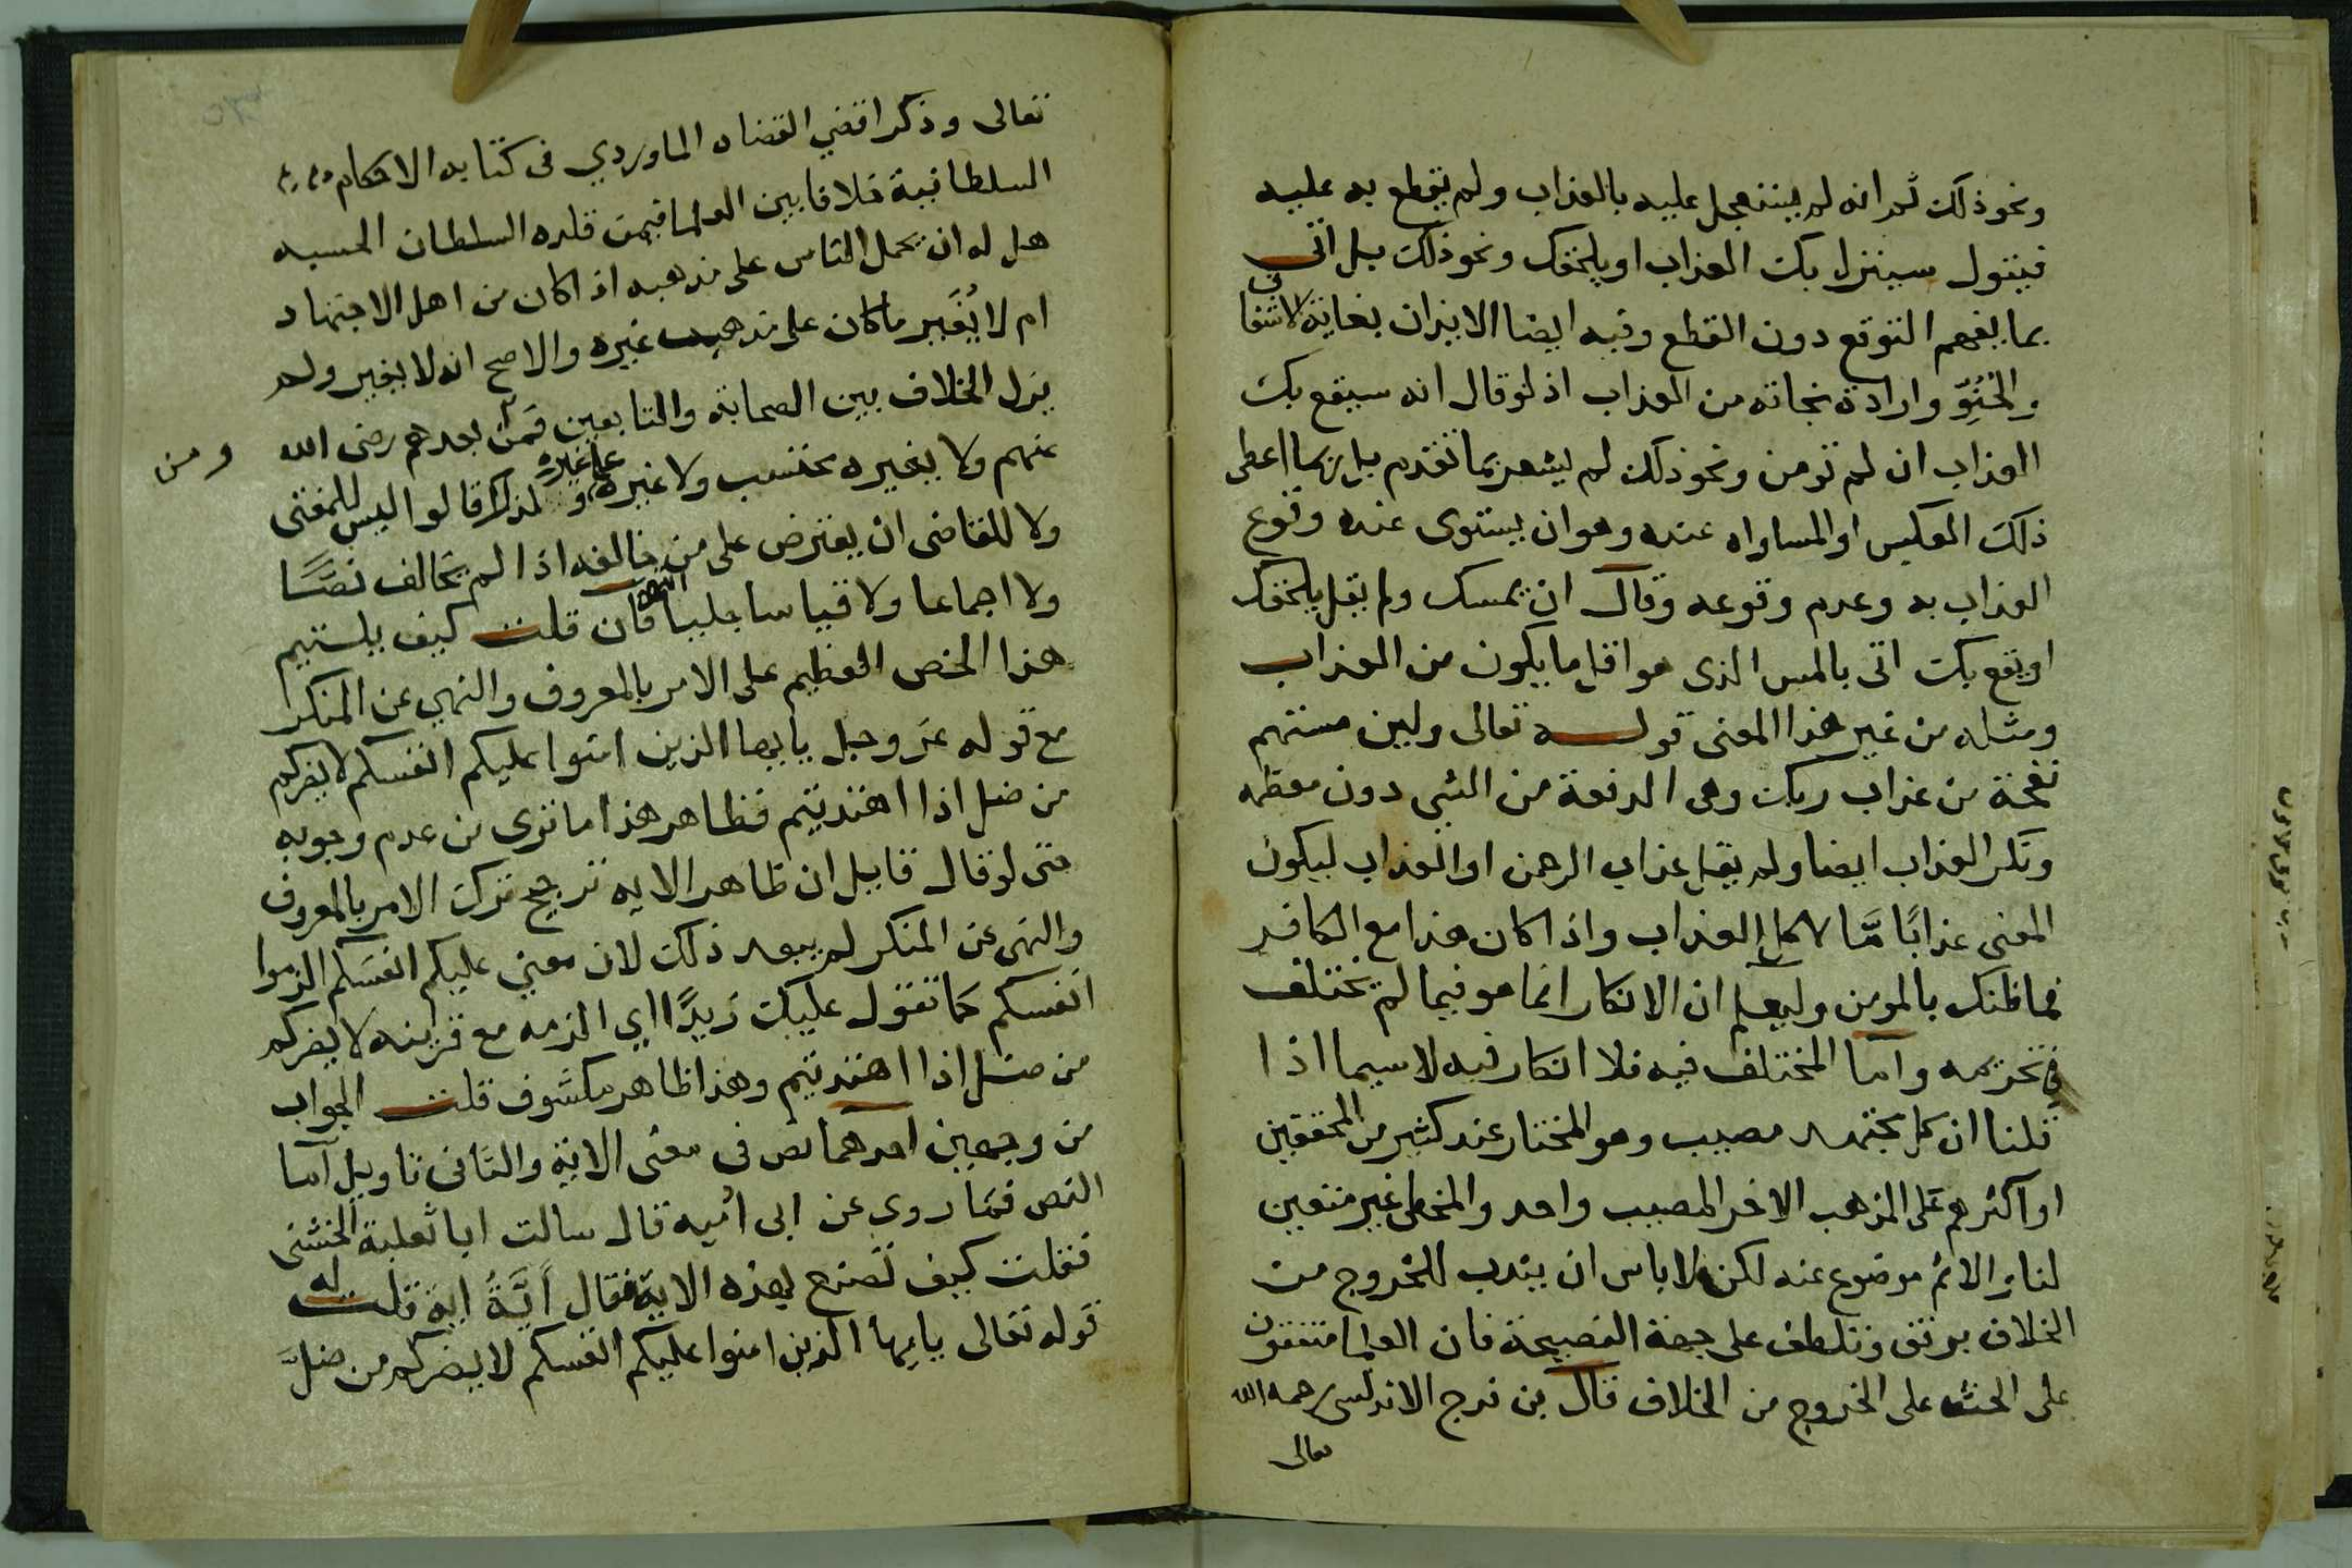 ونحو ذلك ثم انه لم يستعجل عليه بالعذاب ولم يقطع به عليه
فيقول سينزل بك العذاب او يلحقك ونحو ذلك بل اتى
بما يفهم التوقع دون القطع وفيه ايضا الايذان بغاية الاشفاق
والحنو وارادة نجاته من العذاب اذ لو قال انه سيقع بك
العذاب ان لم تومن ونحو ذلك لم يشعر بما تقدم بل ربما اعطى
ذلك العكس او المساواه عنده وهو ان يستوى عنده وقوع
العذاب به وعدم وقوعه وقال ان يمسك ولم يقل يلحقك
او يقع بك اتى بالمس الذى هو اقل ما يكون من العذاب
ومثله من غير هذا المعنى قوله تعالى ولين مستهم
نفحة من عذاب ربك وهى الدفعة من الشي دون معظمه
ونكر العذاب ايضا ولم يقل عذاب الرحمن او العذاب ليكون
المعنى عذابًا مَّا لا كل العذاب واذا كان هذا مع الكافر
فما ظنك بالمومن وليعلم ان الانكار انما هو فيما لم يختلف
في تحريمه واما المختلف فيه فلا انكار فيه لا سيما اذا
قلنا ان كل مجتهد مصيب وهو المختار عند كثير من المحققين
او اكثرهم على المذهب الاخر المصيب واحد والمخطى غير متعين
لنا والاثم موضوع عنه لكن لا باس ان يندب للخروج من
الخلاف برفق وتلطف على جهة النصيحة فان العلما متفقون
على الحث على الخروج من الخلاف قال بن فرج الاندلسى رحمه الله
تعالى
تعالى وذكر اقضي القضاه الماوردي فى كتابه الاحكام
السلطانية خلافا بين العلما فيمن قلده السلطان الحسبه
هل له ان يحمل الناس على مذهبه اذا كان من اهل الاجتهاد
ام لا يُغَيّر ما كان على مذهب غيره والاصح انه لا يغير ولم
يزل الخلاف بين الصحابة والتابعين فمن بعدهم رضى الله
ومن
عنهم ولا يغيره محتسب ولا غيره على غيره ولذلك قالوا ليس للمفتى
ولا للقاضى ان يعترض على من خالفه اذا لم يخالف نصًّا
ولا اجماعا ولا قياسا جليا انتهى فان قلت كيف يلستيم
هذا الحض العظيم على الامر بالمعروف والنهي عن المنكر
مع قوله عز وجل يايها الذين امنوا عليكم انفسكم لا يضركم
من ضل اذا اهتديتم فظاهر هذا ما ترى من عدم وجوبه
حتى لو قال قايل ان ظاهر الايه ترجيح ترك الامر بالمعروف
والنهى عن المنكر لم يبعد ذلك لان معنى عليكم انفسكم الزموا
انفسكم كما تقول عليك زيدًا اي الزمه مع قرينه لا يضركم
من ضل اذا اهتديتم وهذا ظاهر مكشوف قلت الجواب
من وجهين احدهما نص فى معنى الاية والثانى تاويل اما
النص فما روي عن ابى امُيه قال سالت ابا ثعلبة الخشنى
فقلت كيف تصنع بهذه الاية فقال أيَّةُ اية قلت له
قوله تعالى يايها الذين امنوا عليكم انفسكم لا يضركم من ضلَّ